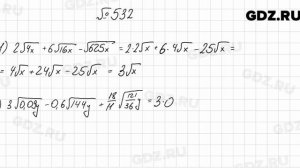 GDZ.RU
№ 532
) 2√4x + 6√16x − √625x = 2·2√x + 6·4√x − 25√x =
= 4√x + 24√x − 25√x = 3√x
) 3√0,09y − 0,6√144y + 18/11 √(121/36 y) = 3·0